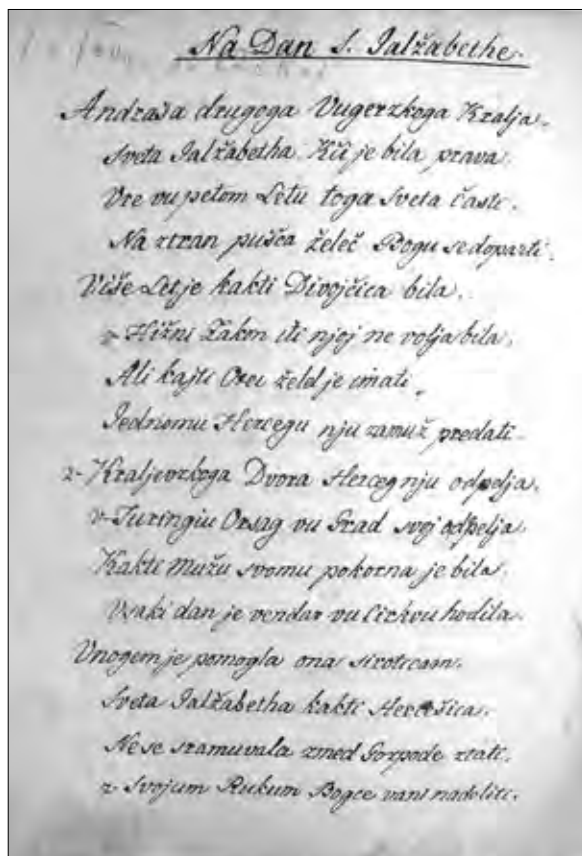 Na Dan S. Jalžabethe.
Andraša drugoga Vugerzkoga Kralja.
Sveta Jalžabetha Kči je bila prava.
Vre vu petom Letu toga Sveta časti.
Na ztran pušča želeč Bogu se dopasti.
Više Let je kakti Divojčica bila.
v Hižni Zakon iti njoj ne volja bila.
Ali kajti Otec želel je imati,
Jednomu Hercegu nju zamuž predati.
z- Kraljevzkoga Dvora Herceg nju odpelja.
v- Turingiu Orsag vu Grad svoj odpelja
Kakti Mužu svomu pokorna je bila.
Vsaki dan je vendar vu Cirkvu hodila.
Vnogem je pomogla ona siroticam.
Sveta Jalžabetha kakti Hercešica.
Ne se sramuvala zmed Gozpode ztati.
z Svojum Rukum Bogce vani nadeliti.